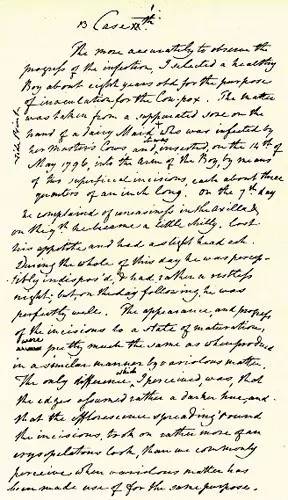 13 Case XXth.
The more accurately to observe the
progress of the infection, I selected a healthy
Boy about eight years old for the purpose
of inoculation for the Cow-pox. The matter
was taken from a suppurated sore on the
hand of a dairy Maid who was infected by
her Master's Cows and inserted, on the 14th of
May 1796, into the arm of the Boy, by means
of two superficial incisions, each about three
quarters of an inch long. On the 7th day
he complained of uneasiness in the axilla &
on the 9th he became a little chilly, lost
his appetite and had a slight head ach.
During the whole of this day he was percep-
tibly indispos'd, & had rather a restless
night; but on the day following, he was
perfectly well. The appearance, and progress
of the incisions to a state of maturation,
were pretty much the same as when produced
in a similar manner by variolous matter.
The only difference, which I perceived, was, that
the edges assumed rather a darker hue, and
that the efflorescence spreading round
the incisions, took on rather more of an
erysipelatous look, than we commonly
perceive when variolous matter has
been made use of for the same purpose.